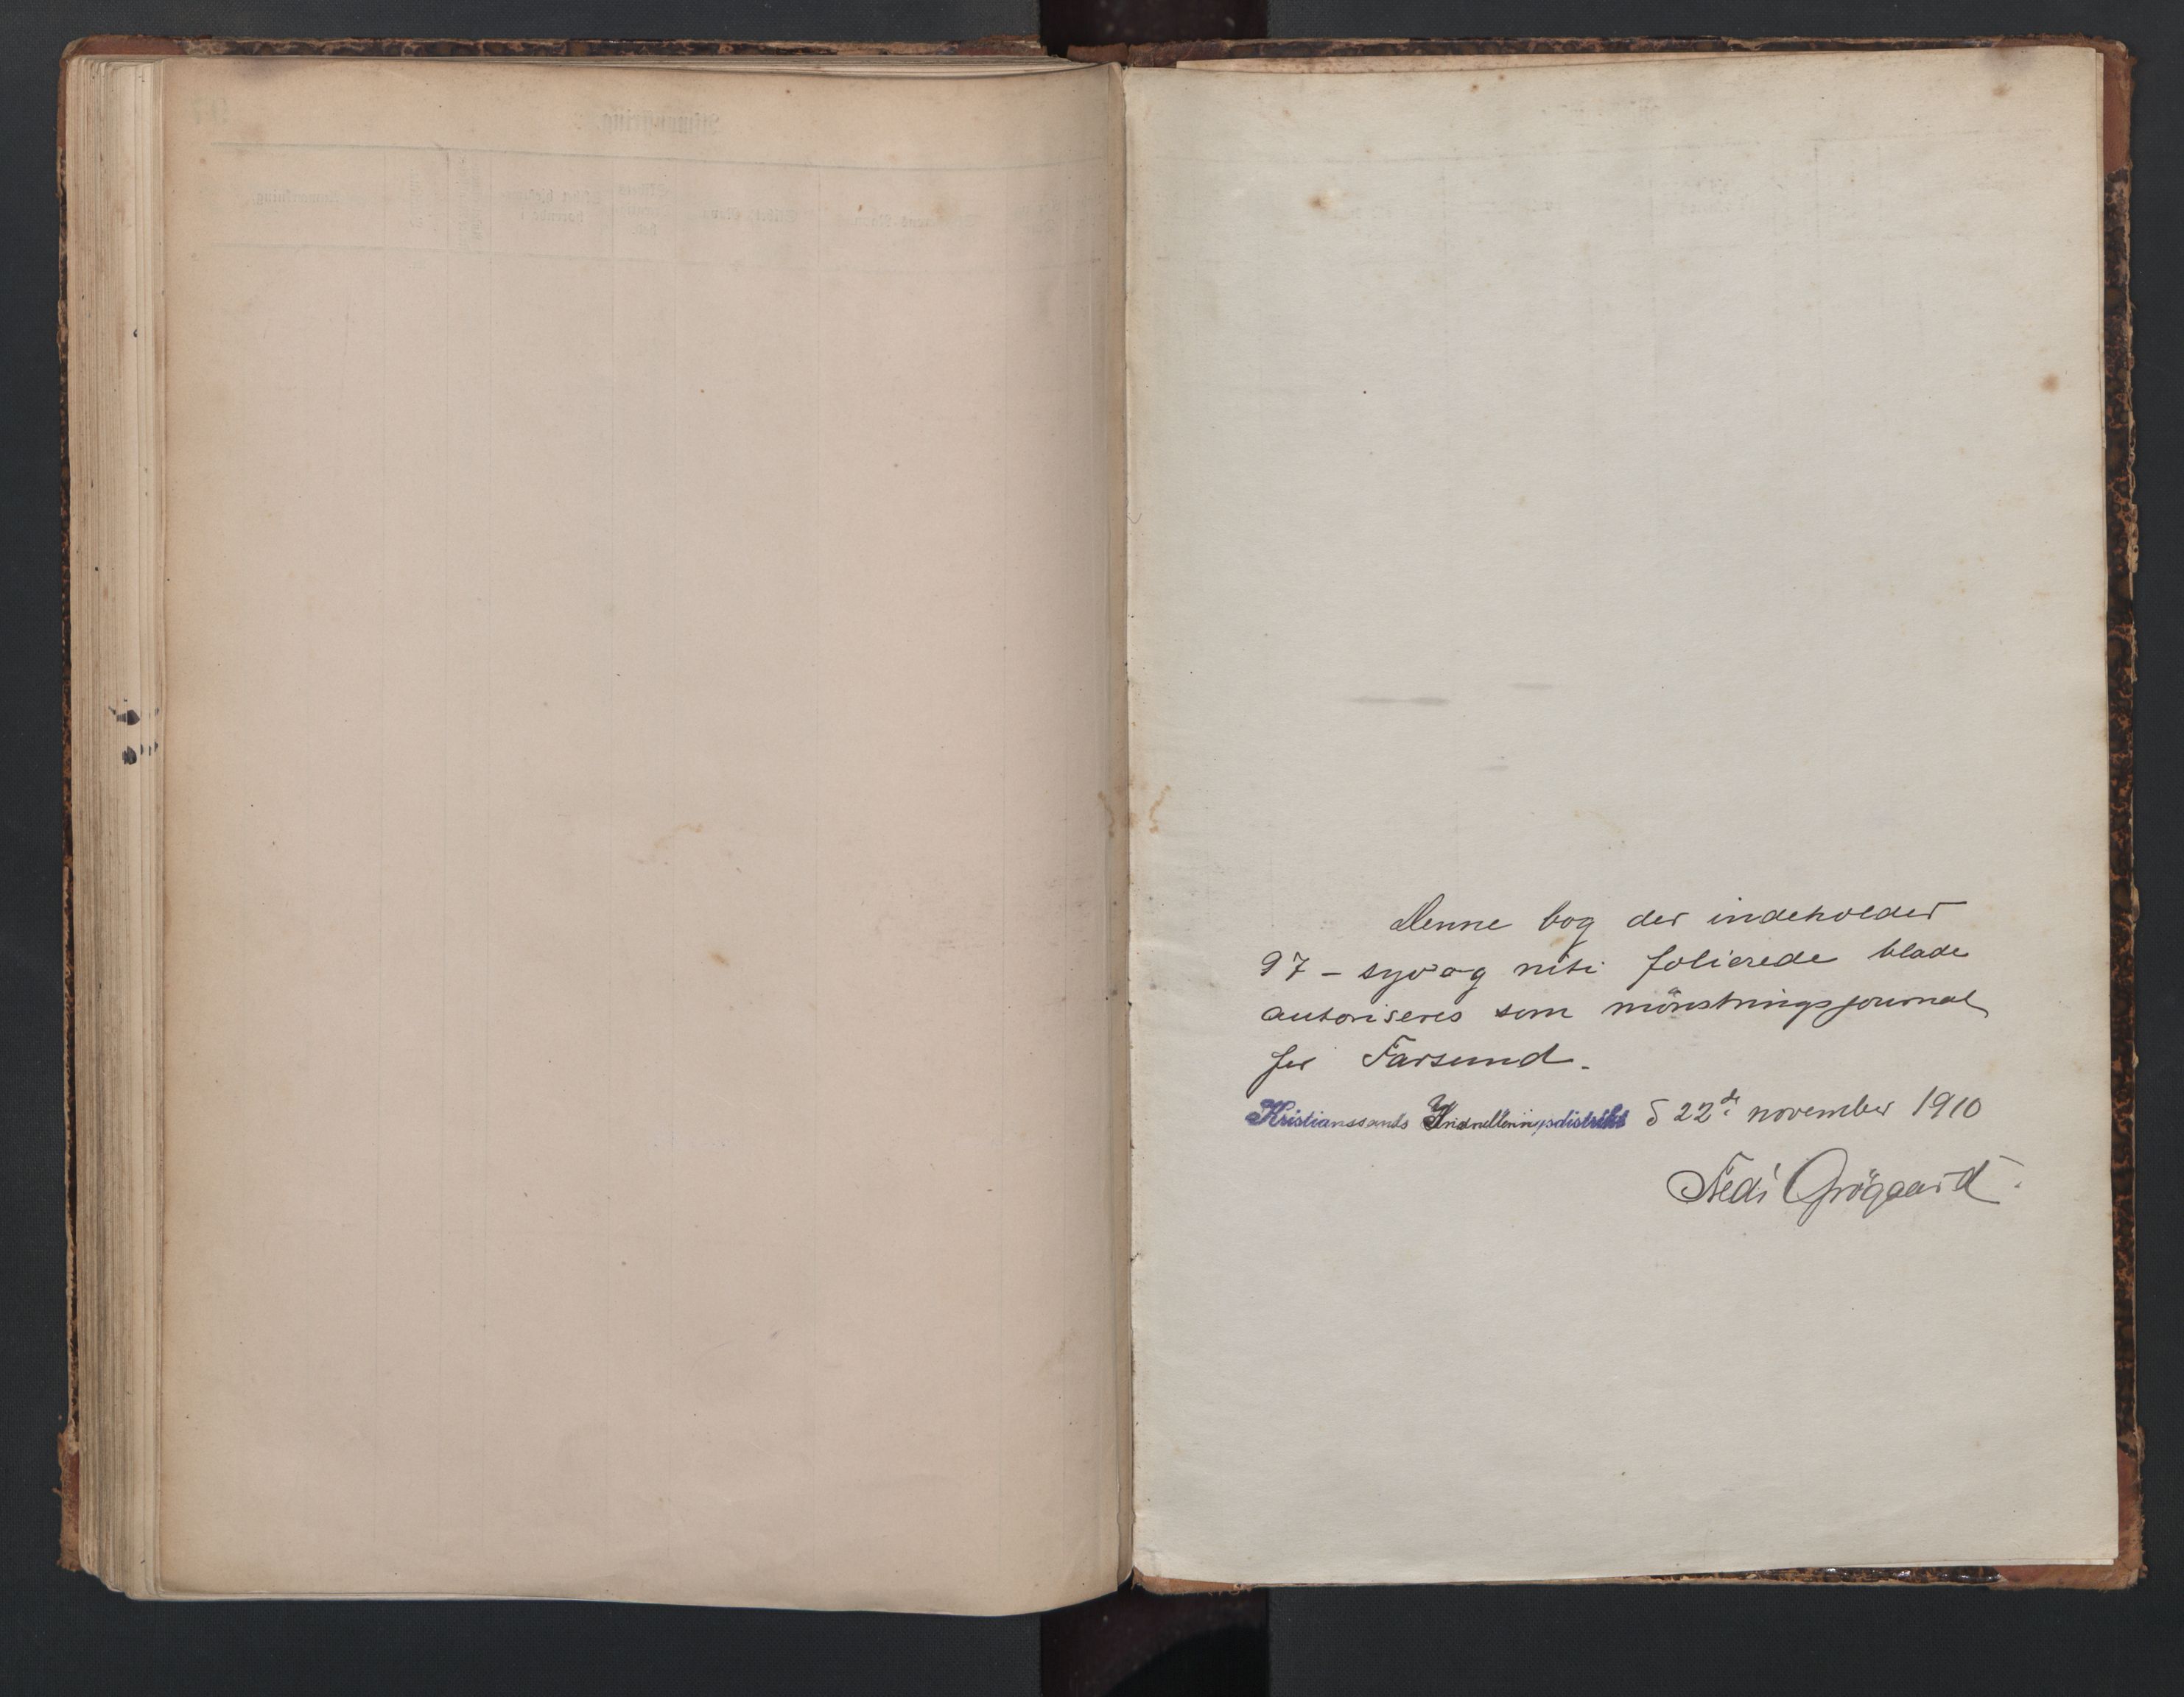 Denne bog der indeholder
97 - syv og niti folierede blade
autoriseres som mönstringsjournal
for Farsund.
Kristianssands Indrulleringsdistrikt d 22de november 1910
Grögaard.